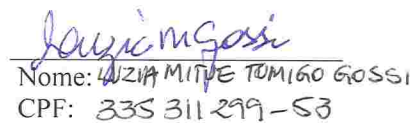 Luzia M Gossi
Nome: LUZIA MITUE TOMIGO GOSSI
CPF: 335 311 299-53